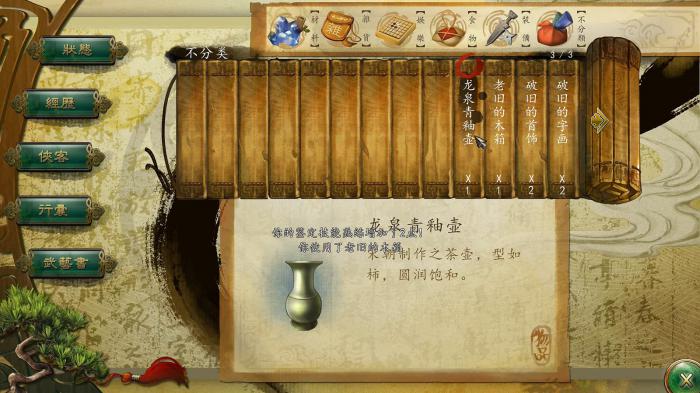 狀態
經歷
俠客
行囊
武藝書
材料
雜貨
娛樂
食物
裝備
不分類
不分类
3/3
龙泉青釉壶 X1
老旧的木箱 X1
破旧的首饰 X2
破旧的字画 X2
龙泉青釉壶
你的鉴定技能熟练增加了2点!
你使用了老旧的木箱
宋朝制作之茶壶，型如
柿，圆润饱和。
物品